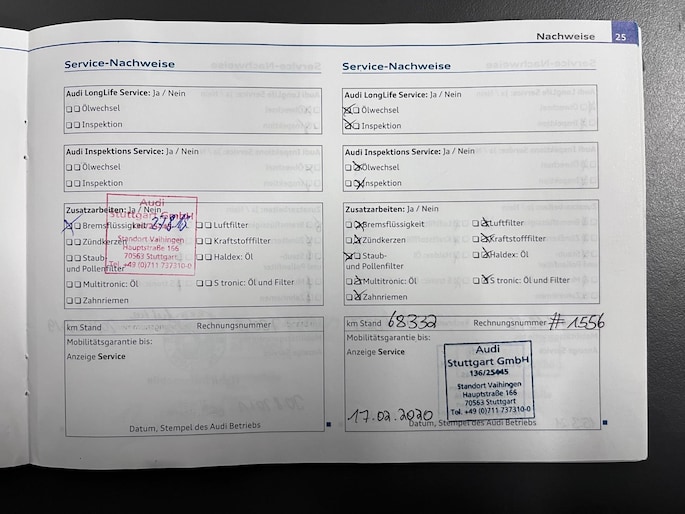 Nachweise 25
Service-Nachweise
Audi LongLife Service: Ja / Nein
Ölwechsel
Inspektion
Audi Inspektions Service: Ja / Nein
Ölwechsel
Inspektion
Zusatzarbeiten: Ja / Nein
Bremsflüssigkeit
Luftfilter
Zündkerzen
Kraftstofffilter
Staub-
und Pollenfilter
Haldex: Öl
Multitronic: Öl
S tronic: Öl und Filter
Zahnriemen
Audi
Stuttgart GmbH
Standort Vaihingen
Hauptstraße 166
70563 Stuttgart
Tel. +49 (0)711 737310-0
km Stand
Rechnungsnummer
Mobilitätsgarantie bis:
Anzeige Service
Datum, Stempel des Audi Betriebs
Service-Nachweise
Audi LongLife Service: Ja / Nein
Ölwechsel
Inspektion
Audi Inspektions Service: Ja / Nein
Ölwechsel
Inspektion
Zusatzarbeiten: Ja / Nein
Bremsflüssigkeit
Luftfilter
Zündkerzen
Kraftstofffilter
Staub-
und Pollenfilter
Haldex: Öl
Multitronic: Öl
S tronic: Öl und Filter
Zahnriemen
km Stand 68332 Rechnungsnummer #1556
Mobilitätsgarantie bis:
Anzeige Service
Audi
Stuttgart GmbH
Standort Vaihingen
Hauptstraße 166
70563 Stuttgart
Tel. +49 (0)711 737310-0
17.02.2020
Datum, Stempel des Audi Betriebs